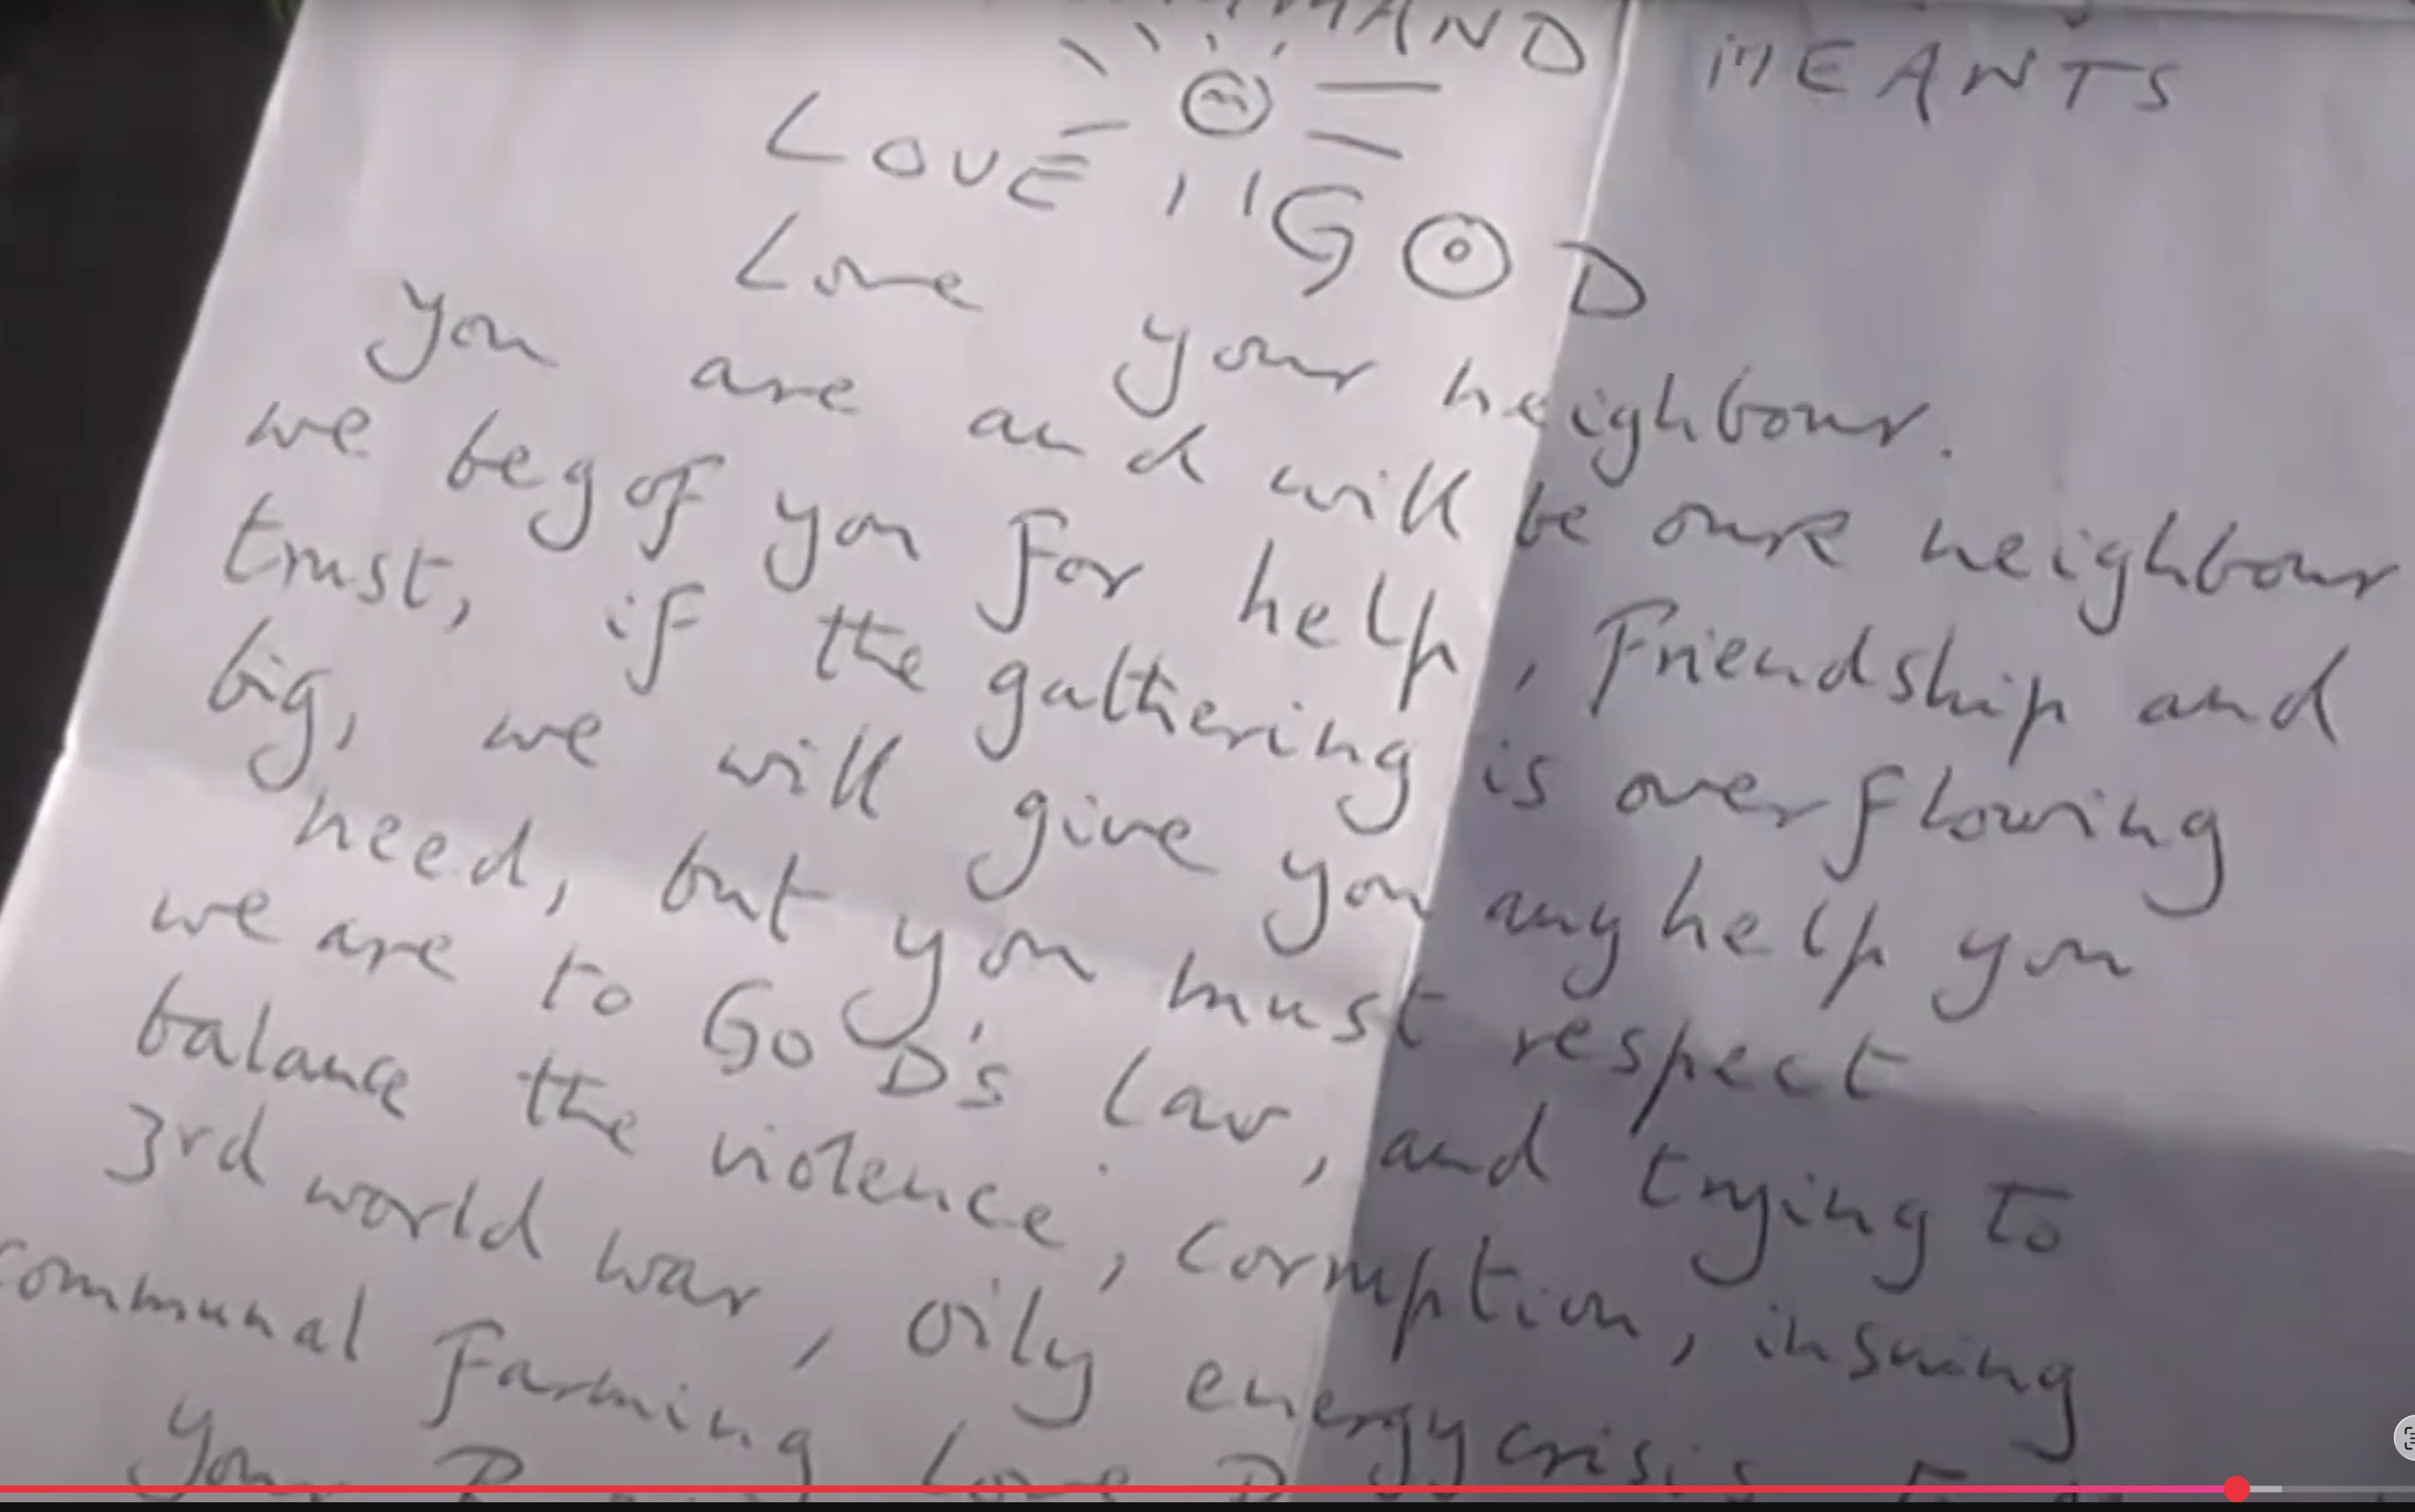 MEANTS
LOVE GOD
Love your neighbour.
you are and will be our neighbour
we beg of you for help, Friendship and
trust, if the gathering is overflowing
big, we will give you any help you
need, but you must respect
we are to GoD's law, and trying to
balance the violence, corruption, insuing
3rd world war, oily energy crisis
communal Farming Love
your